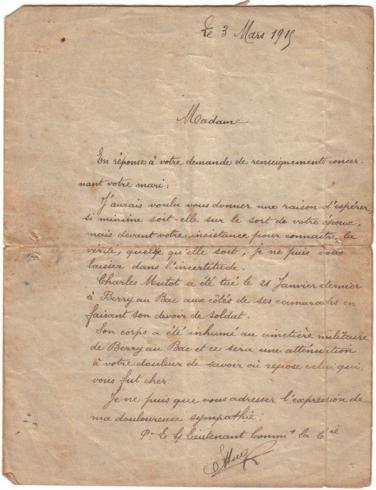 Le 3 Mars 1915
Madame
En réponse à votre demande de renseignements concer-
nant votre mari:
J'aurais voulu vous donner une raison d'espérer
si minime soit-elle sur le sort de votre époux,
mais devant votre insistance pour connaître la
vérité, quelle qu'elle soit, je ne puis vous
laisser dans l'incertitude.
Charles Mutot a été tué le 21 Janvier dernier
à Berry au Bac aux côtés de ses camarades en
faisant son devoir de soldat.
Son corps a été inhumé au cimetière militaire
de Berry au Bac et ce sera une atténuation
à votre douleur de savoir où repose celui qui
vous fut cher
Je ne puis que vous adresser l'expression de
ma douloureuse sympathie.
Pr le Lieutenant Commt la Cie